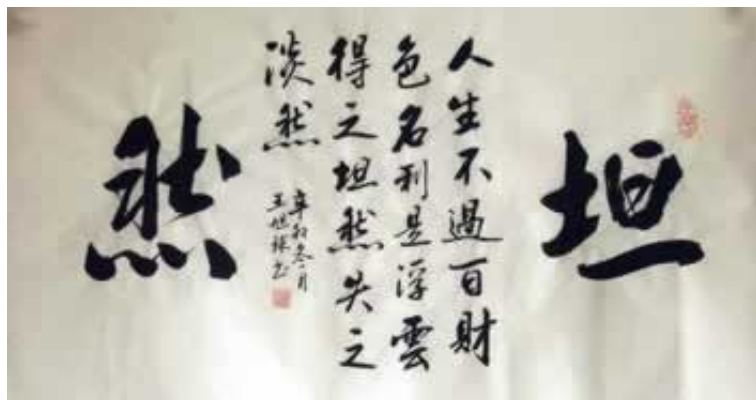 坦
人生不過百財
色名利是浮雲
得之坦然失之
淡然
辛卯冬月
王旭採书
然